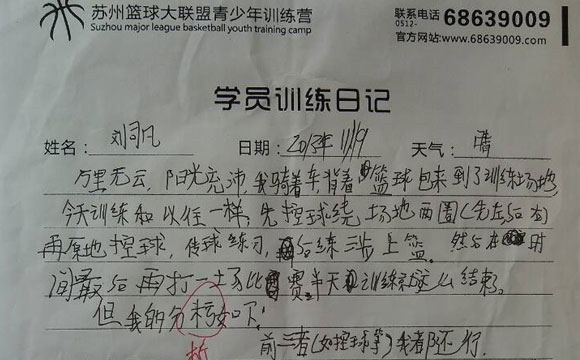 苏州篮球大联盟青少年训练营
Suzhou major league basketball youth training camp
联系电话 0512- 68639009
官方网站:www.68639009.com
学员训练日记
姓名: 刘司凡 日期: 2013年11/19 天气: 晴
万里无云,阳光充沛,我骑着车背着篮球包来到了训练场地
今天训练和以往一样,先控球绕场地两圈(先左后右)
再原地控球,传球练习,后练三步上篮。然后在时
间最后再打一场比赛。半天训练就这么结束。
但我的分析如下:
析
前三者(如控球等)我都还行